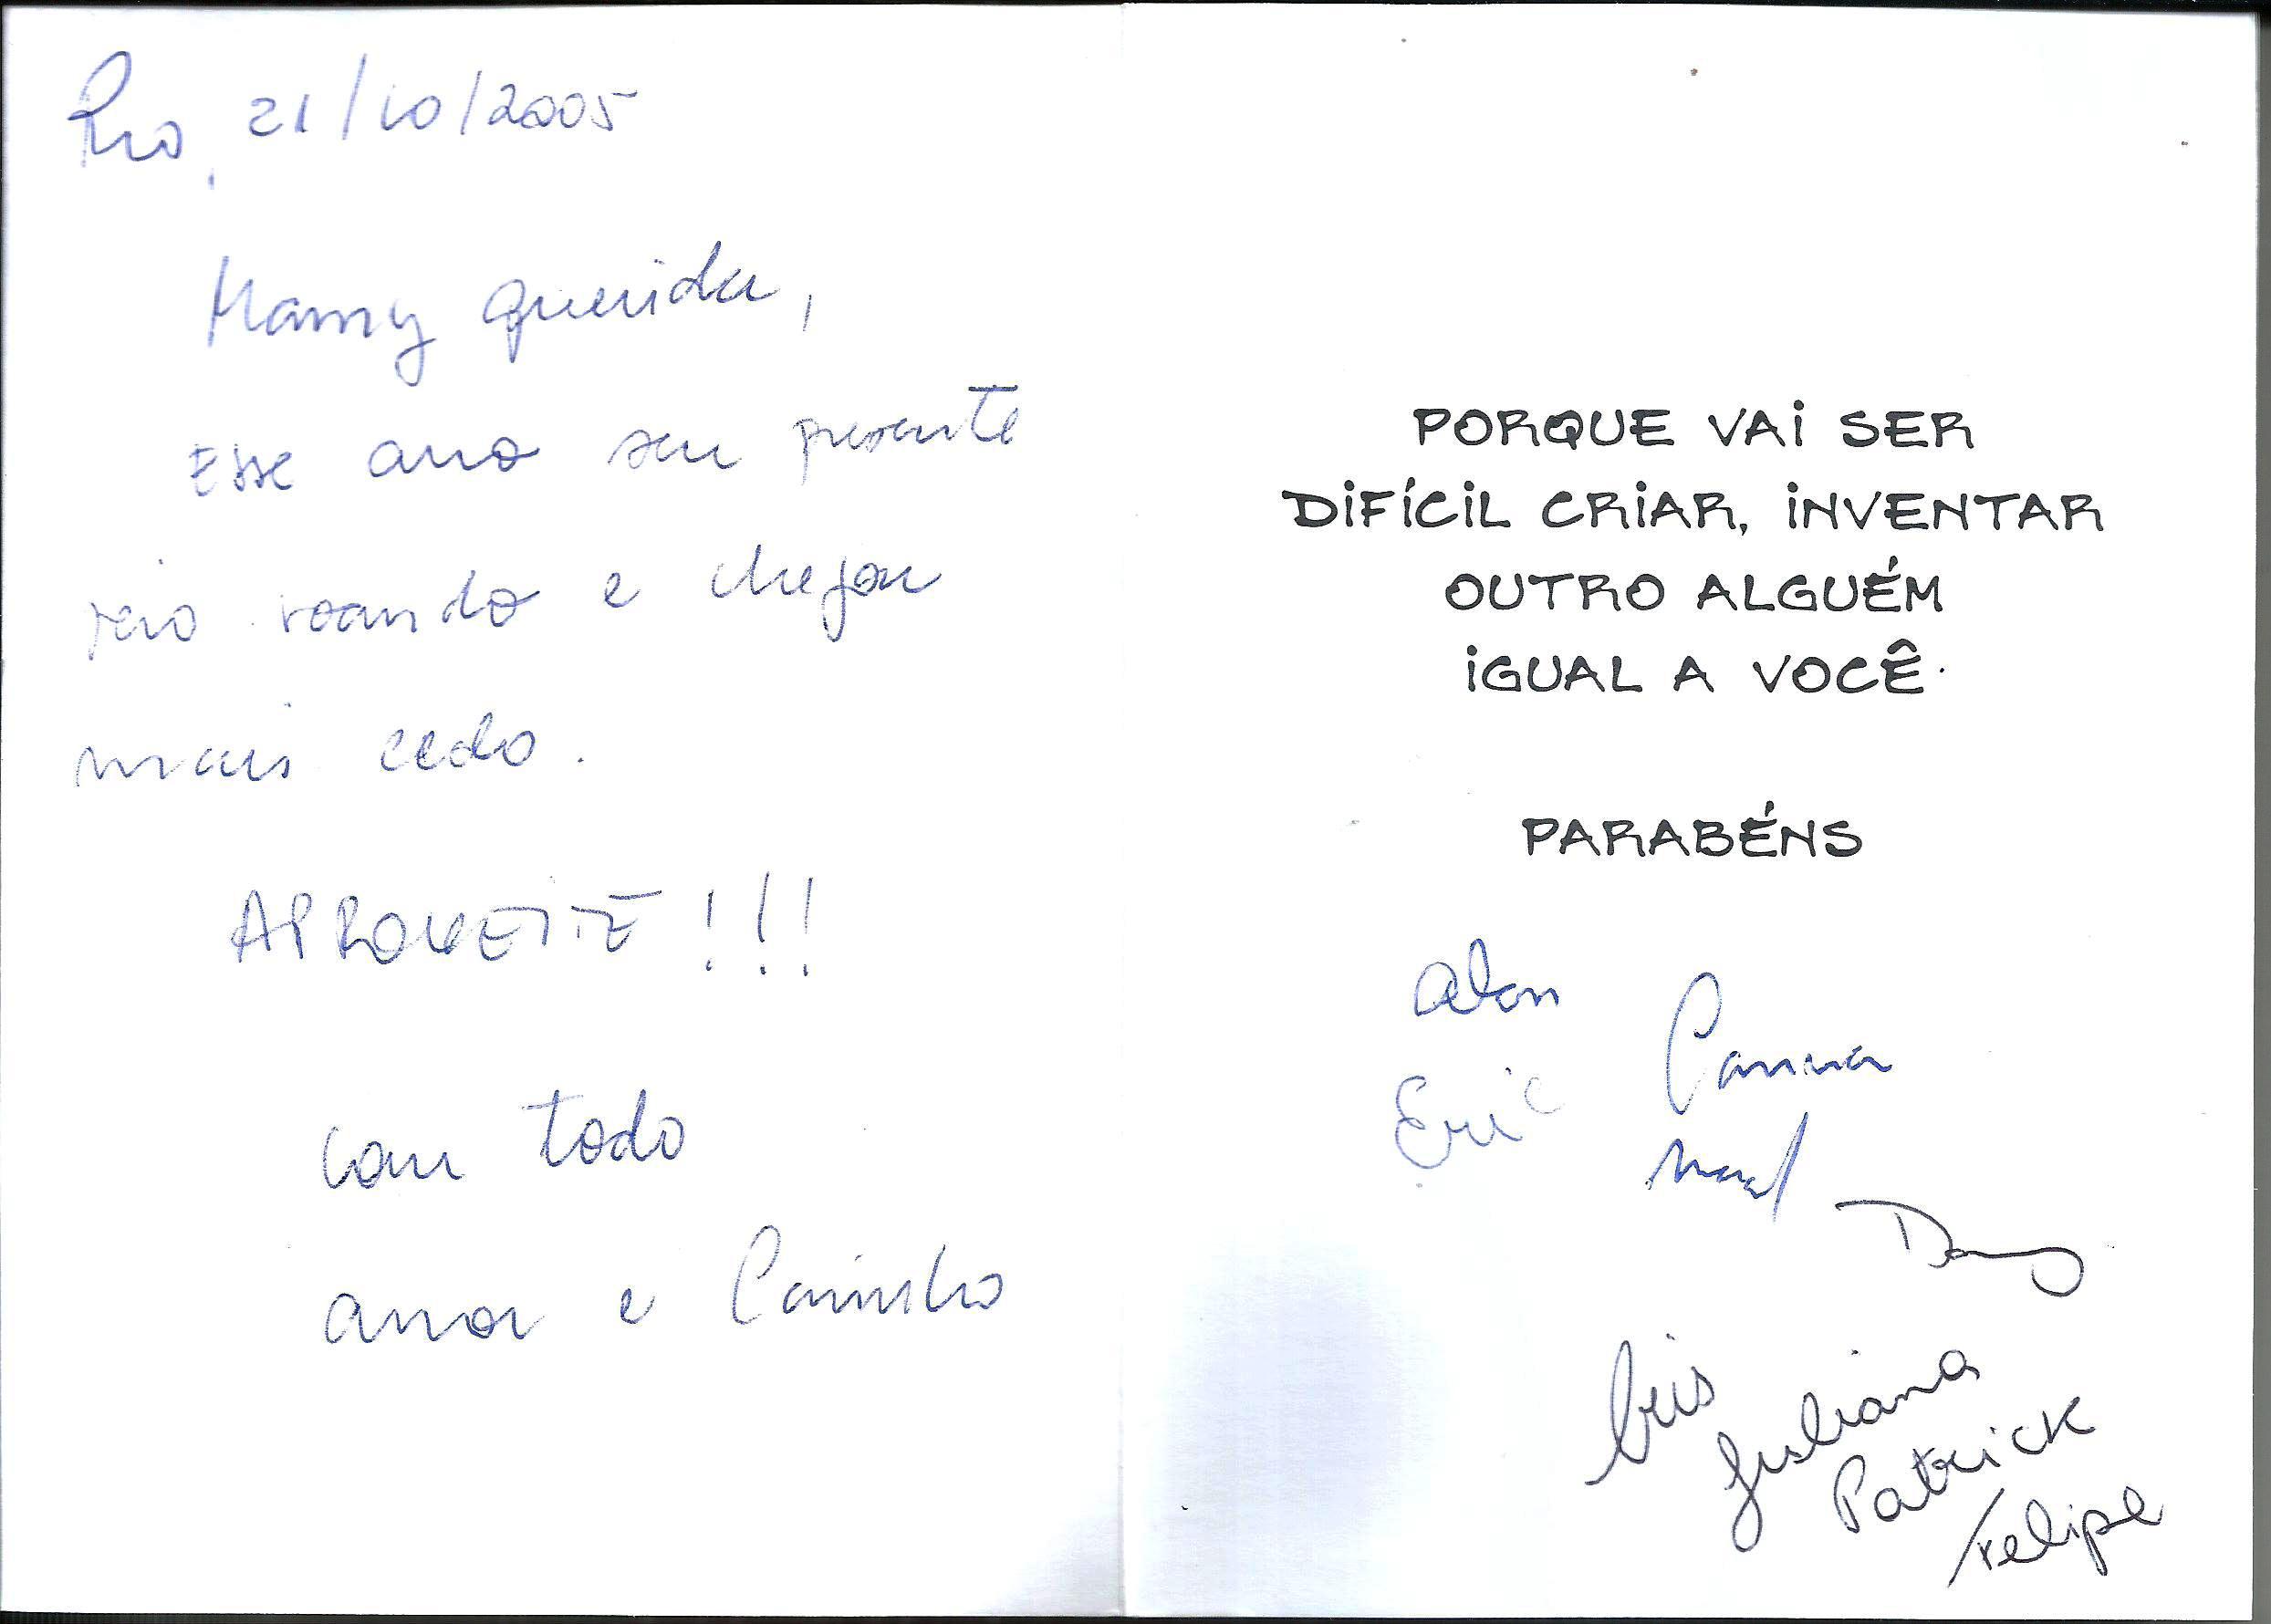 Rio, 21/10/2005
Mamy querida,
Esse ano seu presente
veio voando e chegou
mais cedo.
APROVEITE!!!
com todo
amor e Carinho
PORQUE VAI SER
DIFÍCIL CRIAR, INVENTAR
OUTRO ALGUÉM
IGUAL A VOCÊ.
PARABÉNS
Alan
Eric
Dany
Iris
Juliana
Patrick
Felipe